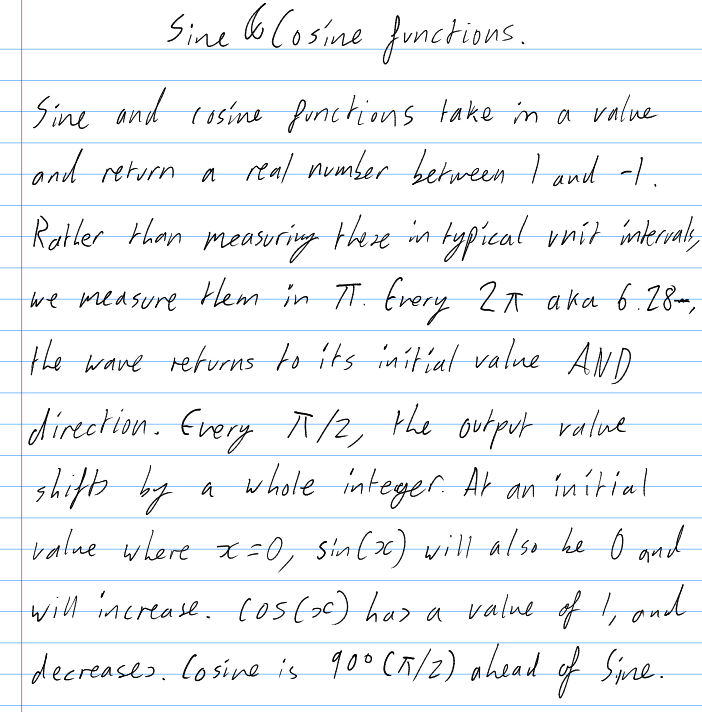 Sine & Cosine functions.
Sine and cosine functions take in a value
and return a real number between 1 and -1.
Rather than measuring these in typical unit intervals,
we measure them in π. Every 2π aka 6.28~,
the wave returns to its initial value AND
direction. Every π/2, the output value
shifts by a whole integer. At an initial
value where x=0, sin(x) will also be 0 and
will increase. cos(x) has a value of 1, and
decreases. Cosine is 90° (π/2) ahead of Sine.